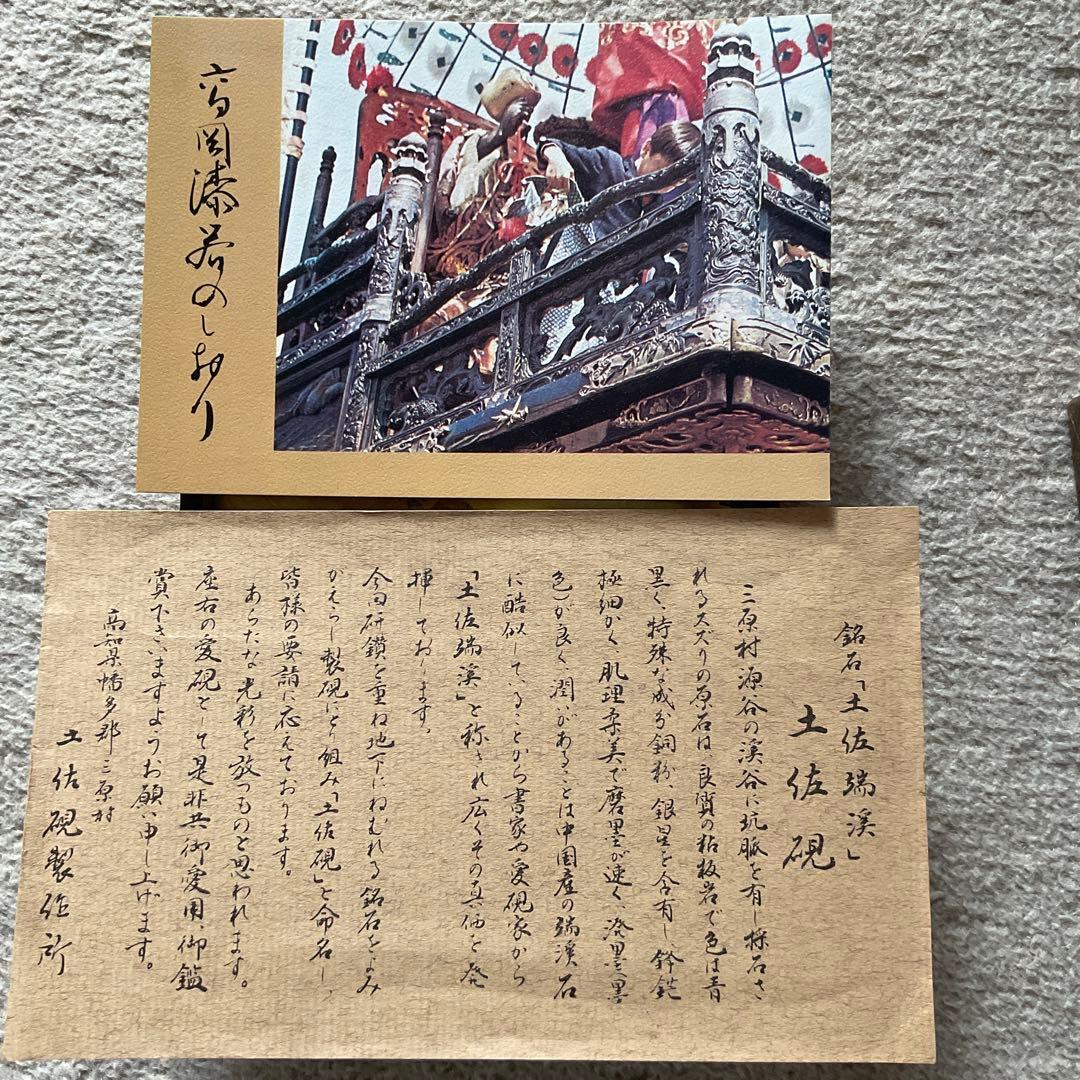 高岡漆器のしおり
銘石「土佐端溪」
土佐硯
三原村源谷の溪谷に坑脈を有し採石さ
れるスズリの原石は良質の粘板岩で色は青
黒く、特殊な成分銅粉、銀星を含有し、鋒鋩
極細かく、肌理柔美で磨墨が速く、溌墨(墨
色)が良く潤いがあることは中国産の端溪石
に酷似していることから書家や愛硯家から
「土佐端溪」と称され広くその真価を発
揮しております。
今回研鑽を重ね地下にねむれる銘石をよみ
がえらし製硯にとり組み「土佐硯」と命名し、
皆様の要請に応えております。
あらたな光彩を放つものと思われます。
座右の愛硯として是非共御愛用、御鑑
賞下さいますようお願い申し上げます。
高知県幡多郡三原村
土佐硯製作所